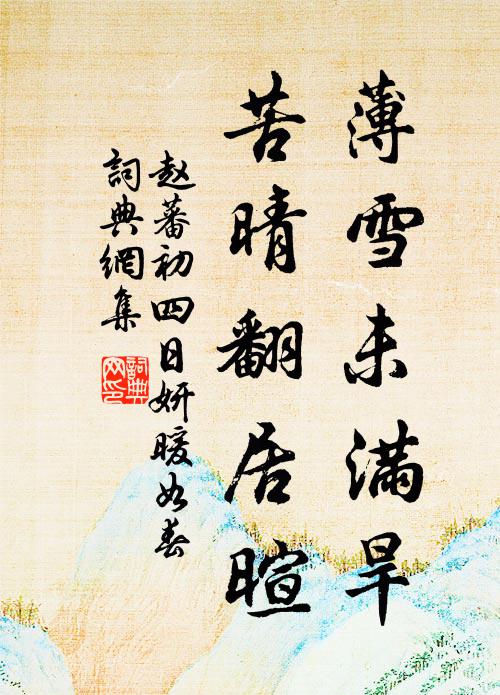 薄雪未满旱
苦晴翻居暄
赵蕃初四日妍暖如春
词典網集
詞典網印